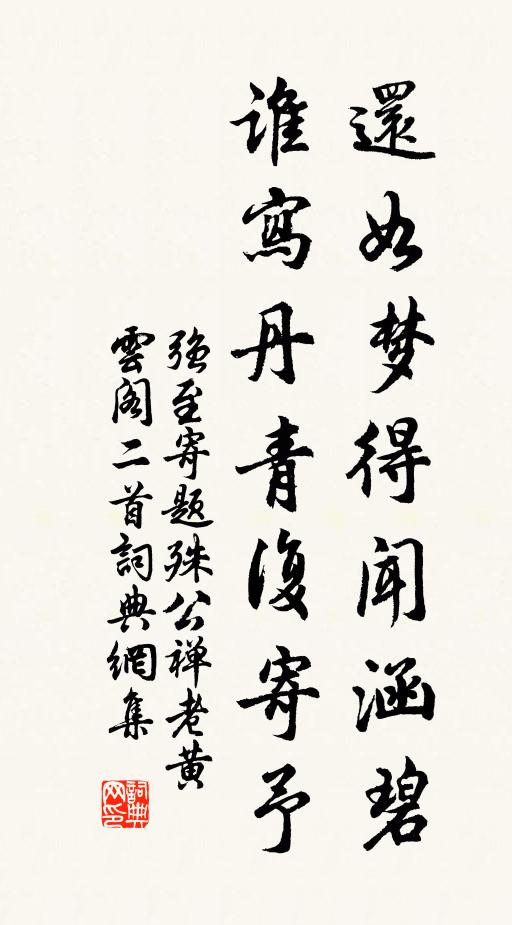 還如梦得闻涵碧
誰寫丹青復寄予
強至寄題殊公禅老黄
雲阁二首詞典網集
詞典网印